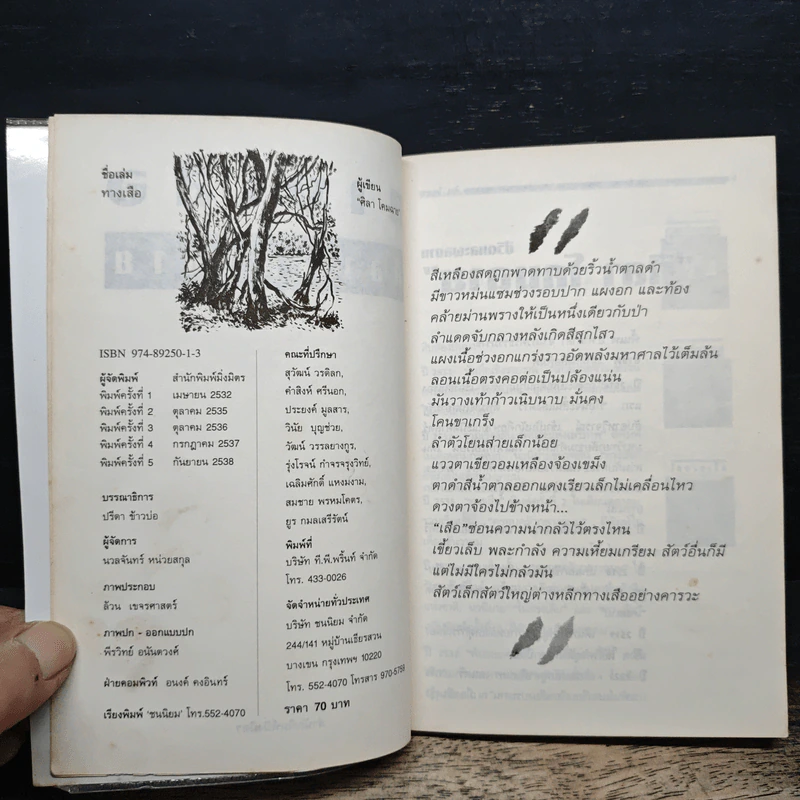 ชื่อเล่ม
ทางเสือ
ผู้เขียน
"ศิลา โคมฉาย"
ISBN 974-89250-1-3
ผู้จัดพิมพ์ สำนักพิมพ์มิ่งมิตร
พิมพ์ครั้งที่ 1 เมษายน 2532
พิมพ์ครั้งที่ 2 ตุลาคม 2535
พิมพ์ครั้งที่ 3 ตุลาคม 2536
พิมพ์ครั้งที่ 4 กรกฎาคม 2537
พิมพ์ครั้งที่ 5 กันยายน 2538
บรรณาธิการ
ปรีดา ข้าวบ่อ
ผู้จัดการ
นวลจันทร์ หน่วยสกุล
ภาพประกอบ
ล้วน เขจรศาสตร์
ภาพปก - ออกแบบปก
พีรวิทย์ อนันตวงศ์
ฝ่ายคอมพิวท์ อนงค์ คงอินทร์
เรียงพิมพ์ 'ชนนิยม' โทร.552-4070
คณะที่ปรึกษา
สุวัฒน์ วรดิลก,
คำสิงห์ ศรีนอก,
ประยงค์ มูลสาร,
วินัย บุญช่วย,
วัฒน์ วรรลยางกูร,
รุ่งโรจน์ กำจรจรุงวิทย์,
เฉลิมศักดิ์ แหงมงาม,
สมชาย พรหมโคตร,
ยูร กมลเสรีรัตน์
พิมพ์ที่
บริษัท ที.พี.พริ้นท์ จำกัด
โทร. 433-0026
จัดจำหน่ายทั่วประเทศ
บริษัท ชนนิยม จำกัด
244/141 หมู่บ้านเธียรสวน
บางเขน กรุงเทพฯ 10220
โทร. 552-4070 โทรสาร 970-5758
ราคา 70 บาท
สีเหลืองสดถูกพาดทาบด้วยริ้วน้ำตาลดำ
มีขาวหม่นแซมช่วงรอบปาก แผงอก และท้อง
คล้ายม่านพรางให้เป็นหนึ่งเดียวกับป่า
ลำแดดจับกลางหลังเกิดสีสุกไสว
แผงเนื้อช่วงอกแกร่งราวอัดพลังมหาศาลไว้เต็มล้น
ลอนเนื้อตรงคอต่อเป็นปล้องแน่น
มันวางเท้าก้าวเนิบนาบ มั่นคง
โคนขาเกร็ง
ลำตัวโยนส่ายเล็กน้อย
แววตาเขียวอมเหลืองจ้องเขม็ง
ตาดำสีน้ำตาลออกแดงเรียวเล็กไม่เคลื่อนไหว
ดวงตาจ้องไปข้างหน้า...
"เสือ"ซ่อนความน่ากลัวไว้ตรงไหน
เขี้ยวเล็บ พละกำลัง ความเหี้ยมเกรียม สัตว์อื่นก็มี
แต่ไม่มีใครไม่กลัวมัน
สัตว์เล็กสัตว์ใหญ่ต่างหลีกทางเสืออย่างคารวะ